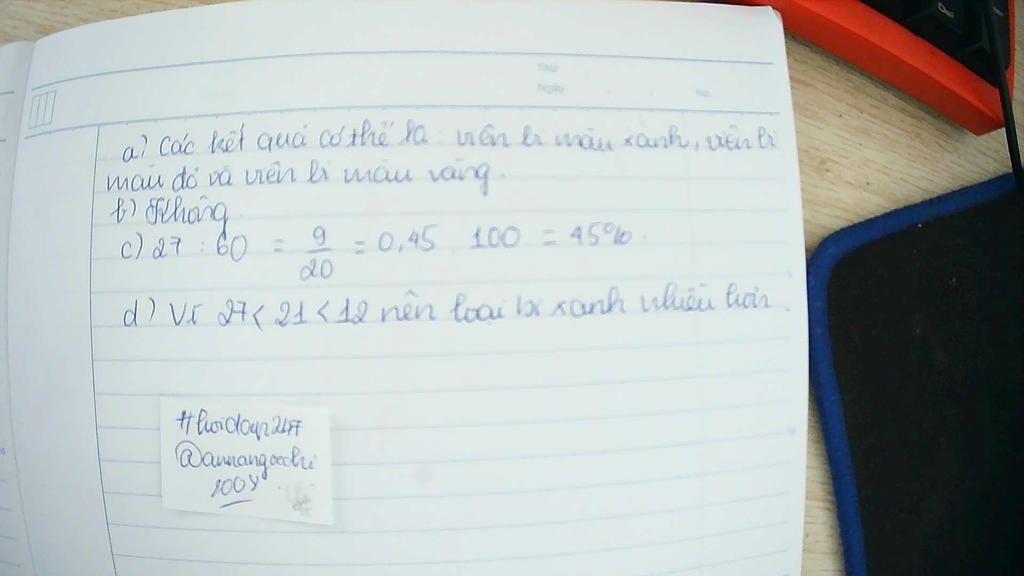 Thứ
Ngày
No.
a) Các kết quả có thể là: viên bi màu xanh, viên bi
màu đỏ và viên bi màu vàng.
b) Không
c) 27 : 60 = 9/20 = 0,45 . 100 = 45%.
d) Vì 27 < 21 < 12 nên loại bi xanh nhiều hơn.
#hoidap247
2008